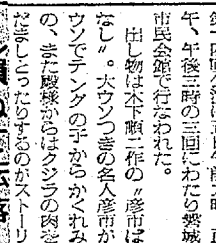 午、午後三時の三回にわたり磐城
市民会館で行なわれた。
出し物は木下順二作の〃彦市ば
なし〃。大ウソつきの名人彦市が
ウソでテングの子からかくれみ
の、また殿様からはクジラの肉を
だましとったりするのがストーリ